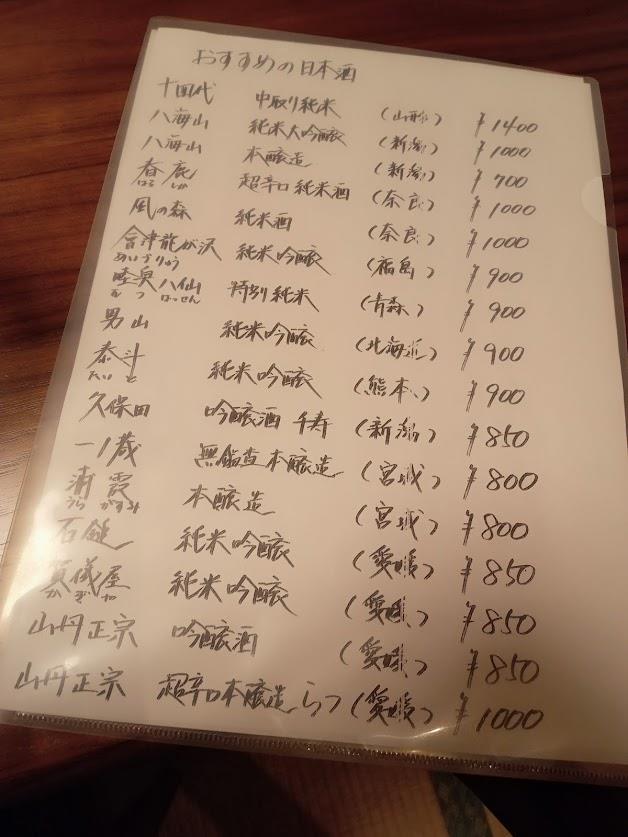 おすすめの日本酒
十四代 中取り純米 (山形) ¥1400
八海山 純米大吟醸 (新潟) ¥1000
八海山 本醸造 (新潟) ¥700
春鹿 超辛口純米酒 (奈良) ¥1000
はる しか
風の森 純米酒 (奈良) ¥1000
會津龍が沢 純米吟醸 (福島) ¥900
あいづりゅう
陸奥八仙 特別純米 (青森) ¥900
むつ はっせん
男山 純米吟醸 (北海道) ¥900
泰斗 純米吟醸 (熊本) ¥900
たい と
久保田 吟醸酒 千寿 (新潟) ¥850
一ノ蔵 無鑑査本醸造 (宮城) ¥800
浦霞 本醸造 (宮城) ¥800
うら かすみ
石鎚 純米吟醸 (愛媛) ¥850
賀儀屋 純米吟醸 (愛媛) ¥850
か ぎ や
山丹正宗 吟醸酒 (愛媛) ¥850
山丹正宗 超辛口本醸造 (愛媛) ¥1000